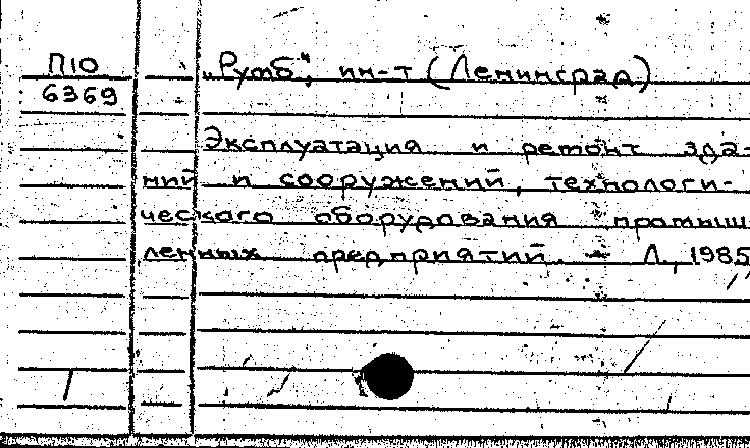 П10
6369
„Румб“, ин-т (Ленинград)
Эксплуатация и ремонт зда-
ний и сооружений, технологи-
ческого оборудования промыш
ленных предприятий. – Л., 1985